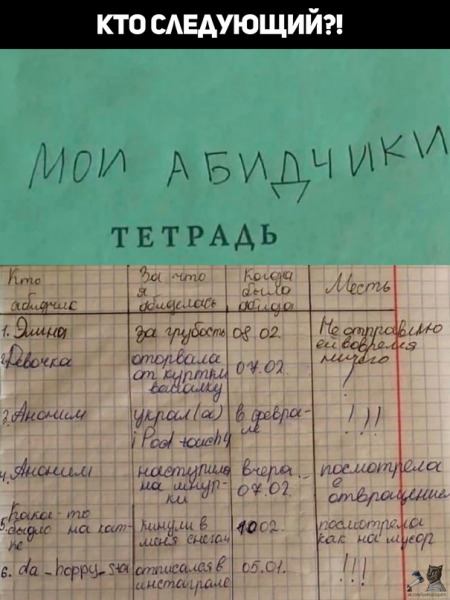 КТО СЛЕДУЮЩИЙ?!
МОИ АБИДЧИКИ
ТЕТРАДЬ
Кто абидчик За что я обиделась Когда была обида Месть
1. Элина за грубость 08.02. Не отправлю ей вовремя ничего
2. Девочка оторвала от куртки 07.02. !
3. Аноним украл(а) iPod touch в феврале !!!
4. Аноним наступил на шнурки вчера 07.02. посмотрела с отвращением
5. Какое-то быдло на кинули в меня снегом 1002. посмотрела как на мусор
6. da_happy_ отписалая в инстаграме 05.01. !!!